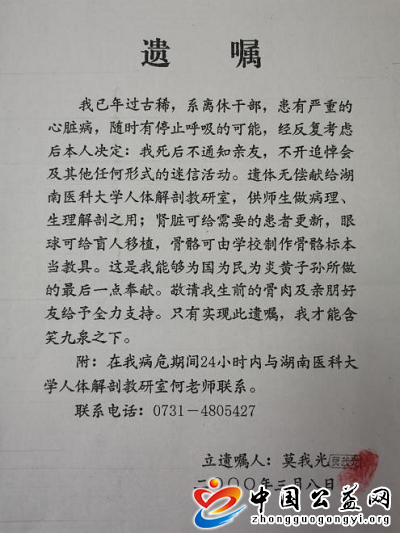 遗 嘱
我已年过古稀，系离休干部，患有严重的
心脏病，随时有停止呼吸的可能，经反复考虑
后本人决定：我死后不通知亲友，不开追悼会
及其他任何形式的迷信活动。遗体无偿献给湖
南医科大学人体解剖教研室，供师生做病理、
生理解剖之用；肾脏可给需要的患者更新，眼
球可给盲人移植，骨骼可由学校制作骨骼标本
当教具。这是我能够为国为民为炎黄子孙所做
的最后一点奉献。敬请我生前的骨肉及亲朋好
友给于全力支持。只有实现此遗嘱，我才能含
笑九泉之下。
附：在我病危期间24小时内与湖南医科大
学人体解剖教研室何老师联系。
联系电话：0731－4805427
立遗嘱人：莫我光
二〇〇〇年三月八日
中国公益网
zhongguogongyi.org